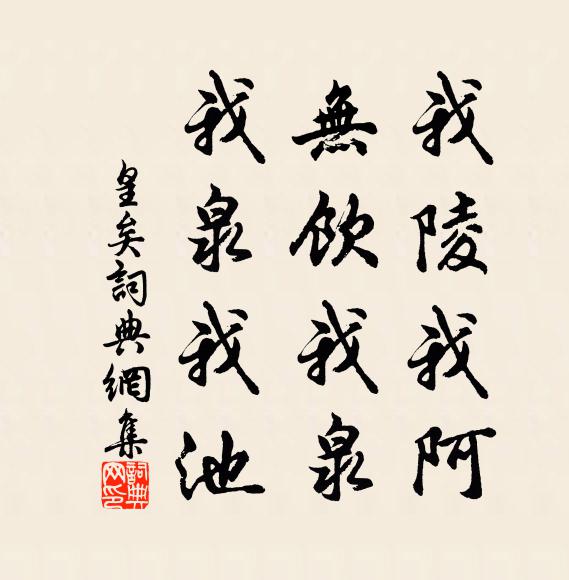 我陵我阿
無飲我泉
我泉我池
皇矣詞典網集
詞典网印